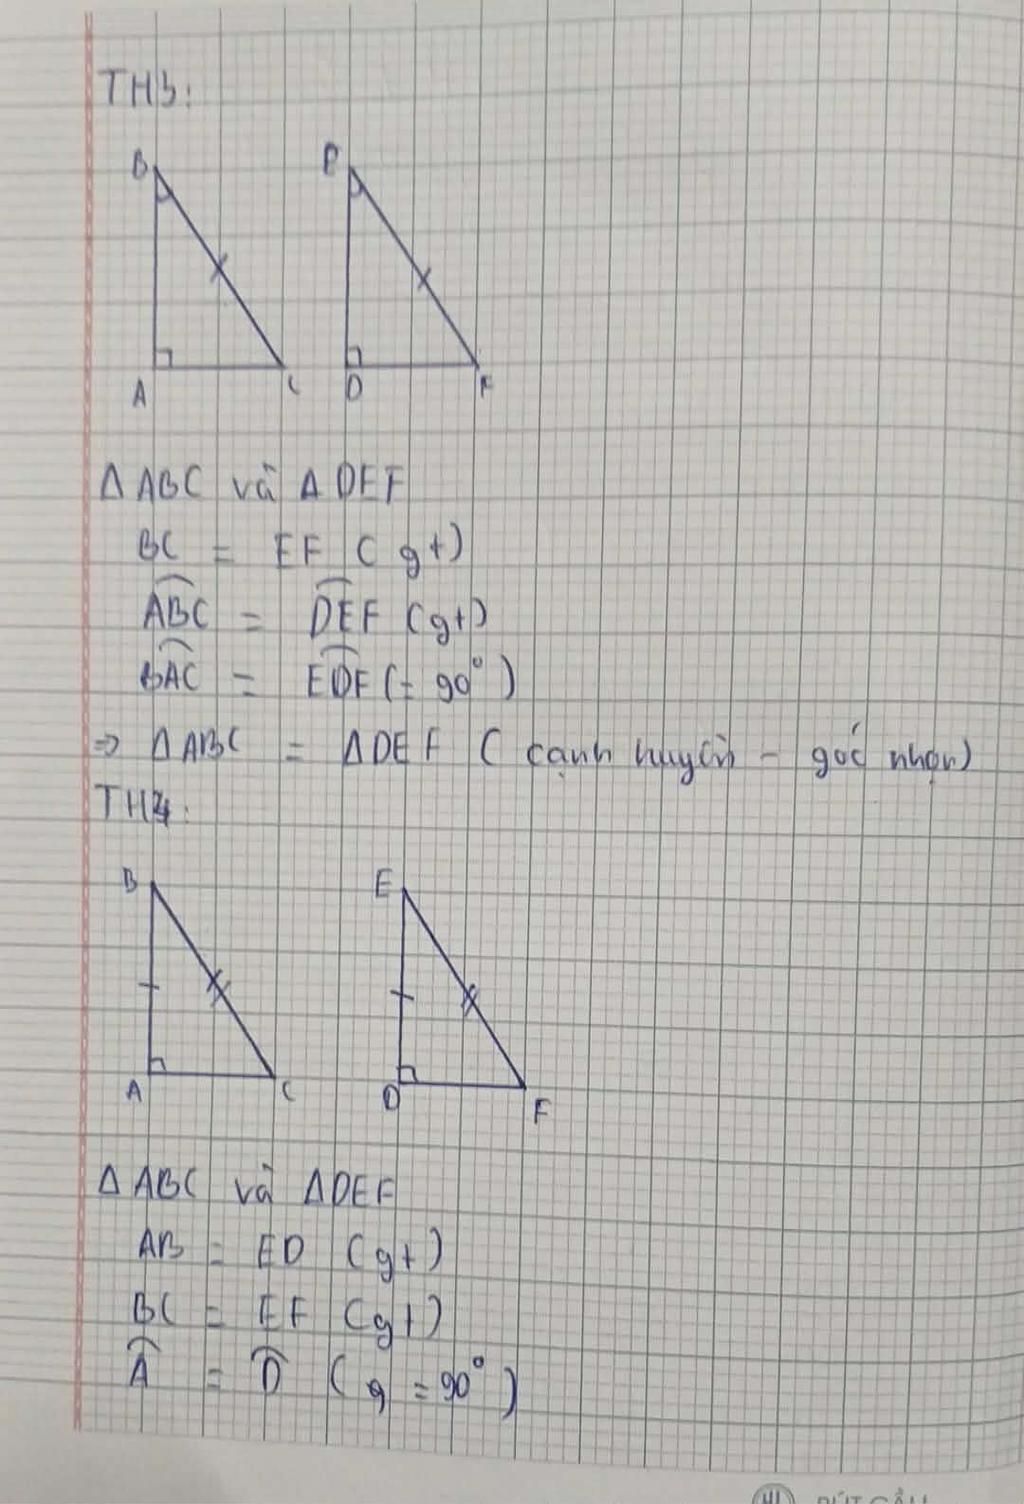 TH3:
B E
A C D F
Δ ABC và Δ DEF
BC = EF (gt)
ABC = DEF (gt)
BAC = EDF (= 90°)
⇒ Δ ABC = Δ DEF (cạnh huyền - góc nhọn)
TH4:
B E
A C D F
Δ ABC và Δ DEF
AB = ED (gt)
BC = EF (gt)
A = D (g = 90°)